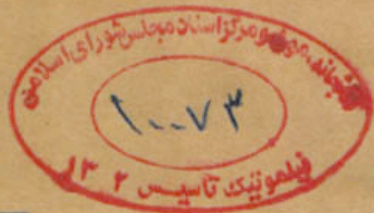 کتابخانه، موزه و مرکز اسناد مجلس شورای اسلامی
۱۰۰۷۳
تأسیس ۱۳۰۲